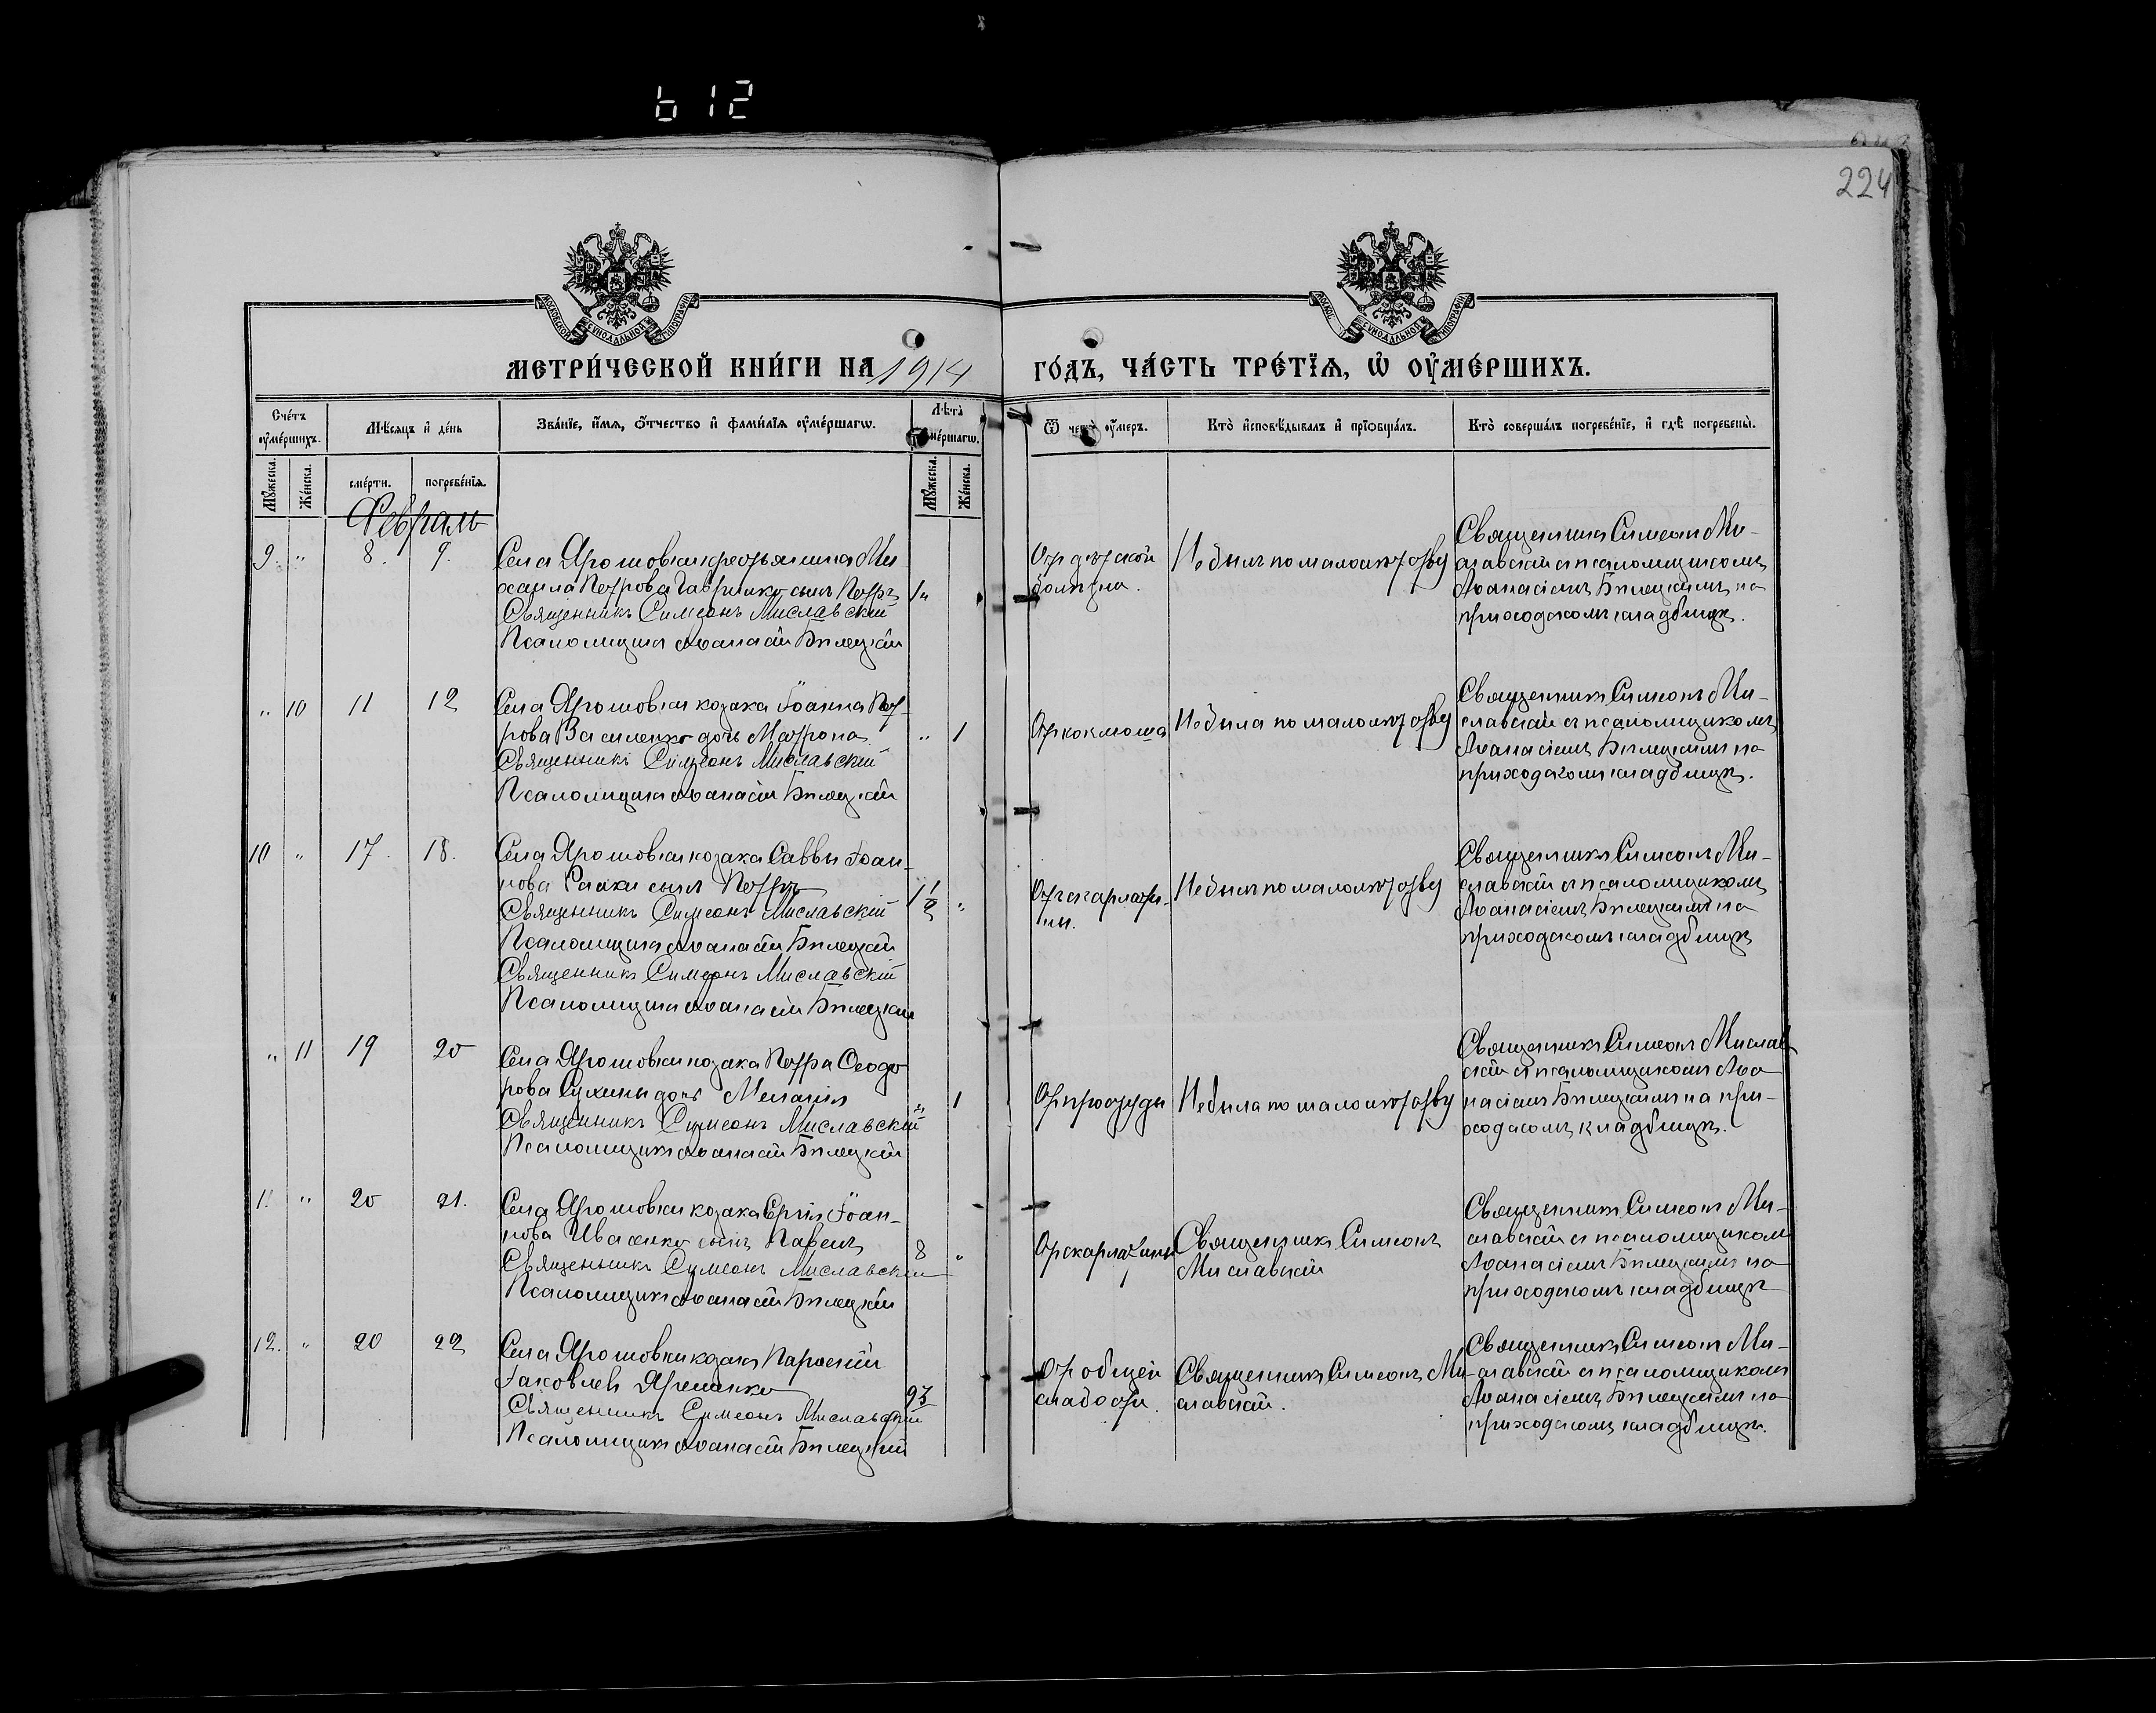 612
224
МОСКОВСКОЙ СѴНОДАЛЬНОЙ ТИПОГРАФІИ
МЕТРИ́ЧЕСКОЙ КНИ́ГИ НА 1914
ГО́ДЪ, ЧА́СТЬ ТРЕ́ТЇѦ, Ѡ҆ ОУ҆МЕ́РШИХЪ.
Сче́тъ оу҆ме́ршихъ.
Мѣ́сяцъ и҆ де́нь
Зва́нїе, и҆́мѧ, ѻ҆́тчество и҆ фами́лїѧ оу҆ме́ршагѡ.
Лѣ́та оу҆ме́ршагѡ.
Ѿ чегѡ̀ оу҆́меръ.
Кто̀ и҆сповѣ́дывалъ и҆ прїѡбща́лъ.
Кто̀ соверша́лъ погребе́нїе, и҆ гдѣ̀ погребены̀.
Мꙋ́жеска.
Же́нска.
сме́рти.
погребе́нїѧ.
Мꙋ́жеска.
Же́нска.
Февраль
9. " 8. 9.
Села Ярошовки крестьянина Ми
хаила Петрова Гавришко сынъ Петръ
Священникъ Симеонъ Миславскій
Псаломщикъ Аѳанасій Бѣлецкій
1 "
Отъ дѣтской
болѣзни.
Не былъ по малолѣтству
Священникъ Симеонъ Ми-
славскій съ псаломщикомъ
Аѳанасіемъ Бѣлецкимъ на
приходскомъ кладбищѣ.
" 10 11 12
Села Ярошовки козака Іоанна Пет-
рова Василенко дочь Матрона
Священникъ Симеонъ Миславскій
Псаломщикъ Аѳанасій Бѣлецкій
" 1
Отъ коклюша
Не была по малолѣтству
Священникъ Симеонъ Ми-
славскій съ псаломщикомъ
Аѳанасіемъ Бѣлецкимъ на
приходскомъ кладбищѣ.
10 " 17. 18.
Села Ярошовки козака Саввы Іоан-
нова сынъ Петръ
Священникъ Симеонъ Миславскій
Псаломщикъ Аѳанасій Бѣлецкій
Священникъ Симеонъ Миславскій
Псаломщикъ Аѳанасій Бѣлецкій
1 1/2 "
Отъ скарлати-
ны.
Не былъ по малолѣтству
Священникъ Симеонъ Ми-
славскій съ псаломщикомъ
Аѳанасіемъ Бѣлецкимъ на
приходскомъ кладбищѣ
" 11 19 20
Села Ярошовки козака Петра Ѳеодо
рова Сухины дочь Меланія
Священникъ Симеонъ Миславскій
Псаломщикъ Аѳанасій Бѣлецкій
" 1
Отъ простуды
Не была по малолѣтству
Священникъ Симеонъ Миславс
скій съ псаломщикомъ Аѳа
насіемъ Бѣлецкимъ на при-
ходскомъ кладбищѣ.
11. " 20 21.
Села Ярошовки козака Ергія Іоан-
нова Иваненко сынъ Павелъ
Священникъ Симеонъ Миславскій
Псаломщикъ Аѳанасій Бѣлецкій
8 "
Отъ скарлатины
Священникъ Симеонъ
Миславскій
Священникъ Симеонъ Ми-
славскій съ псаломщикомъ
Аѳанасіемъ Бѣлецкимъ на
приходскомъ кладбищѣ
12. " 20 22
Села Ярошовки козакъ Парѳеній
Іаковлевъ Яременко
Священникъ Симеонъ Миславскій
Псаломщикъ Аѳанасій Бѣлецкій
93
Отъ общей
слабости.
Священникъ Симеонъ Ми-
славскій.
Священникъ Симеонъ Ми-
славскій съ псаломщикомъ
Аѳанасіемъ Бѣлецкимъ на
приходскомъ кладбищѣ.